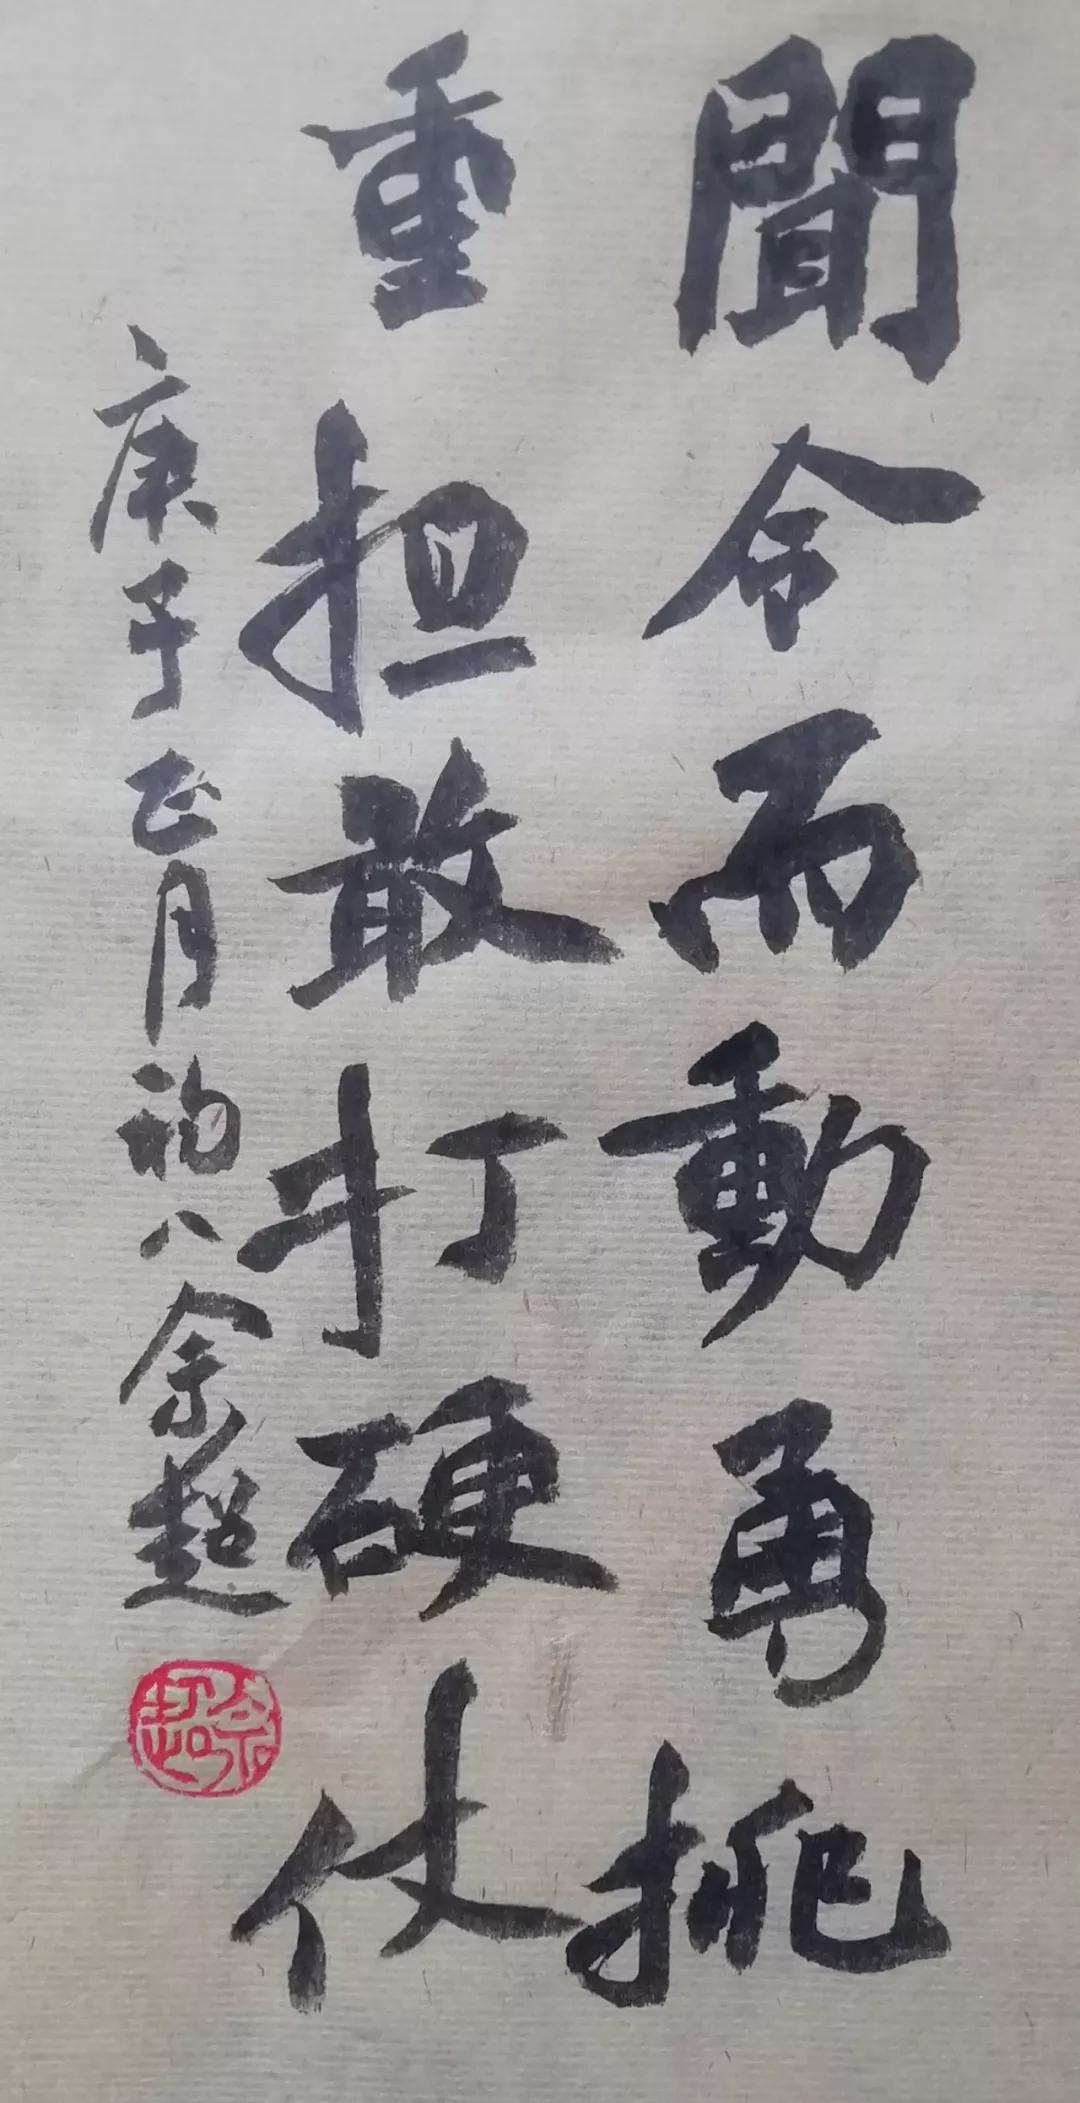 聞令而動勇挑
重担敢打硬仗
庚子正月初八余超
余超